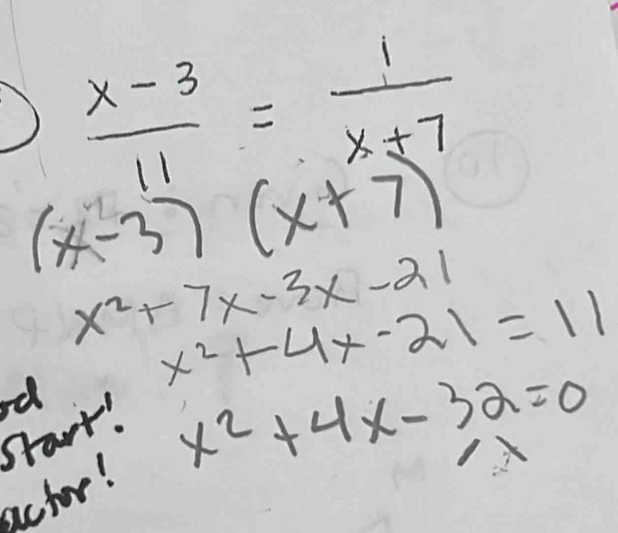 x - 3 / 11 = 1 / x + 7
(x - 3) (x + 7)
x² + 7x - 3x - 21
x² + 4x - 21 = 11
x² + 4x - 32 = 0
start!